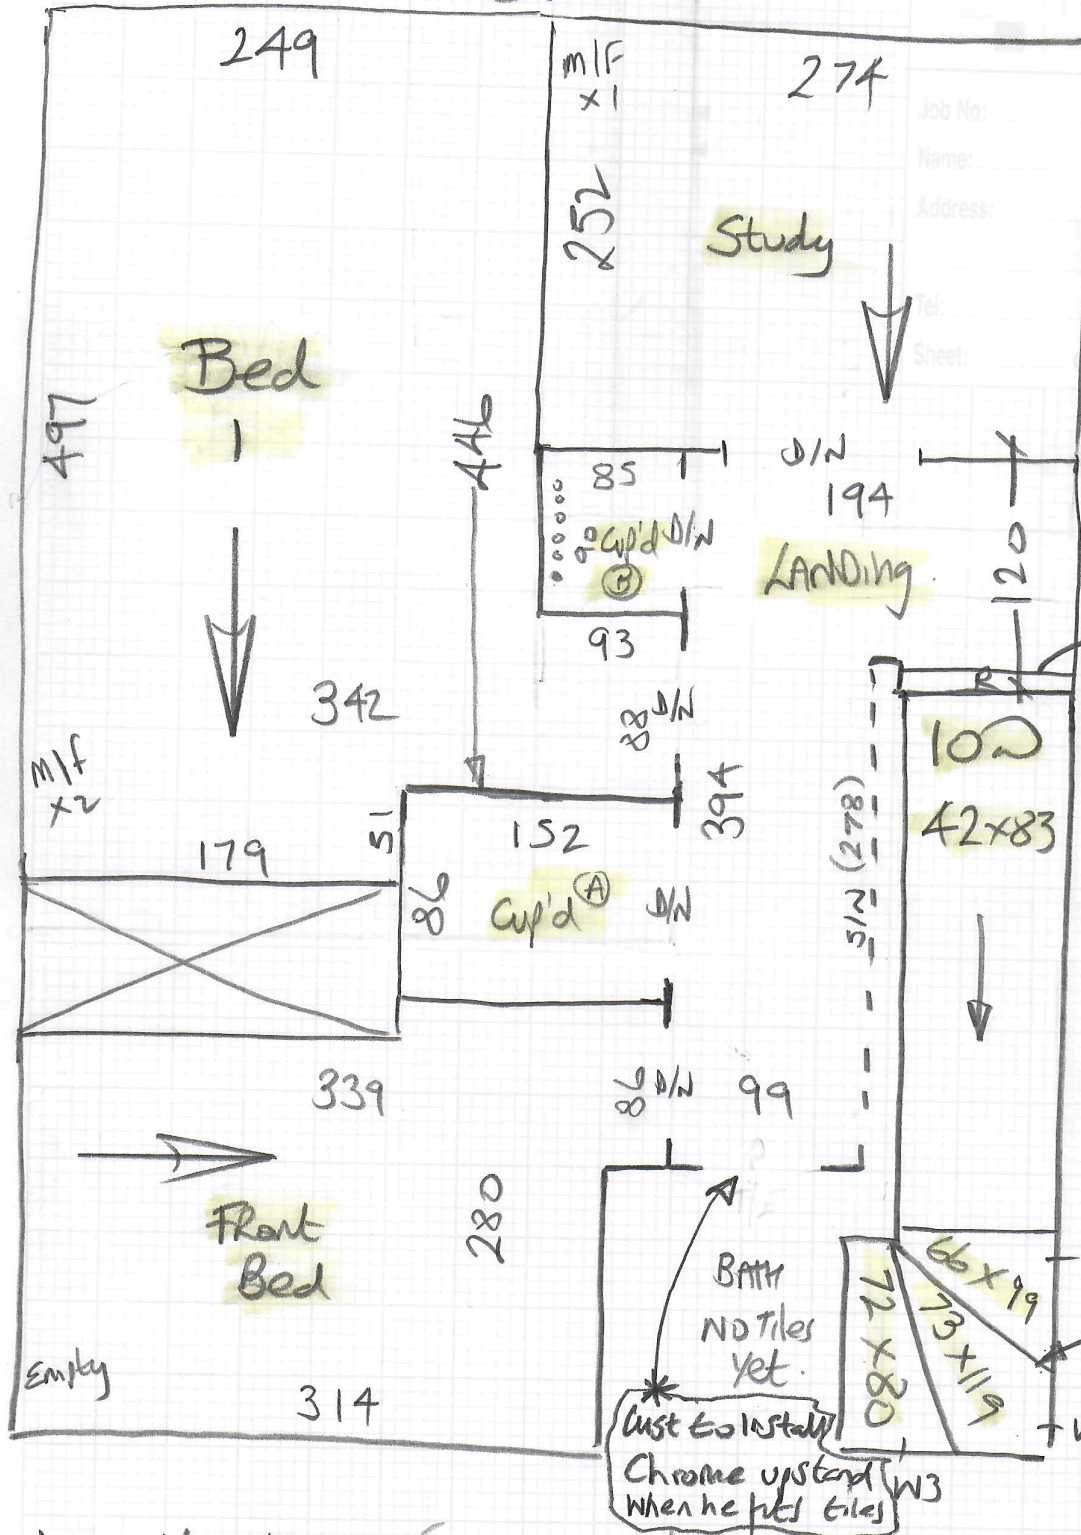 249
M/F
x1
274
Job No:
Name:
Address:
Tel:
Sheet:
252
Study
Bed
1
497
446
85
D/N
194
90
Cup'd
D/N
B
LANDing.
120
93
342
88
D/N
R
10
42x83
M/F
x2
51
152
394
S/N (278)
179
86
Cup'd A
D/N
339
86
D/N
99
280
Front
Bed
BATH
NO Tiles
Yet.
66 x 99
73 x 119
72 x 80
Empty
314
Cust to Install
Chrome upstand
when he puts tiles
W3